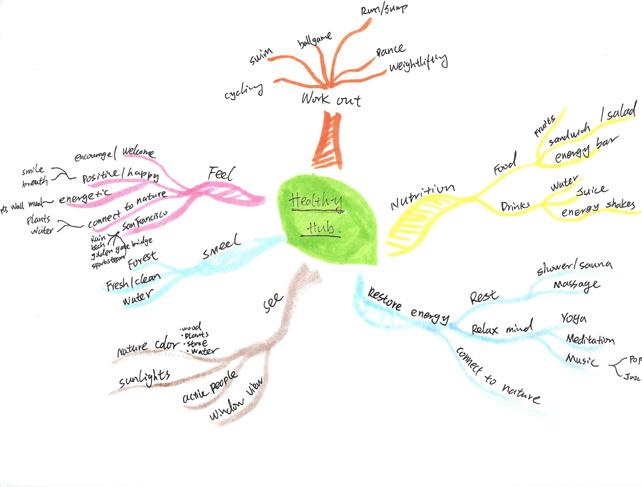 Healthy
Hub.
Work out
cycling
swim
ballgame
Run/Jump
Dance
Weightlifting
Nutrition
Food
Fruits
sandwich /salad
energy bar
Drinks
Water
Juice
energy shakes
Restore energy
Rest
shower/sauna
Massage
Relax mind
Yoga
Meditation
Music
Pop
Jazz
connect to nature
see
nature color
wood
plants
stone
water
sunlights
active people
Window view
smeel
Forest
Fresh/clean
Water
Feel
encourage/ welcome
Positive/happy
smile
breath
energetic
connect to nature
plants
water
San Fancisco
golden gate bridge